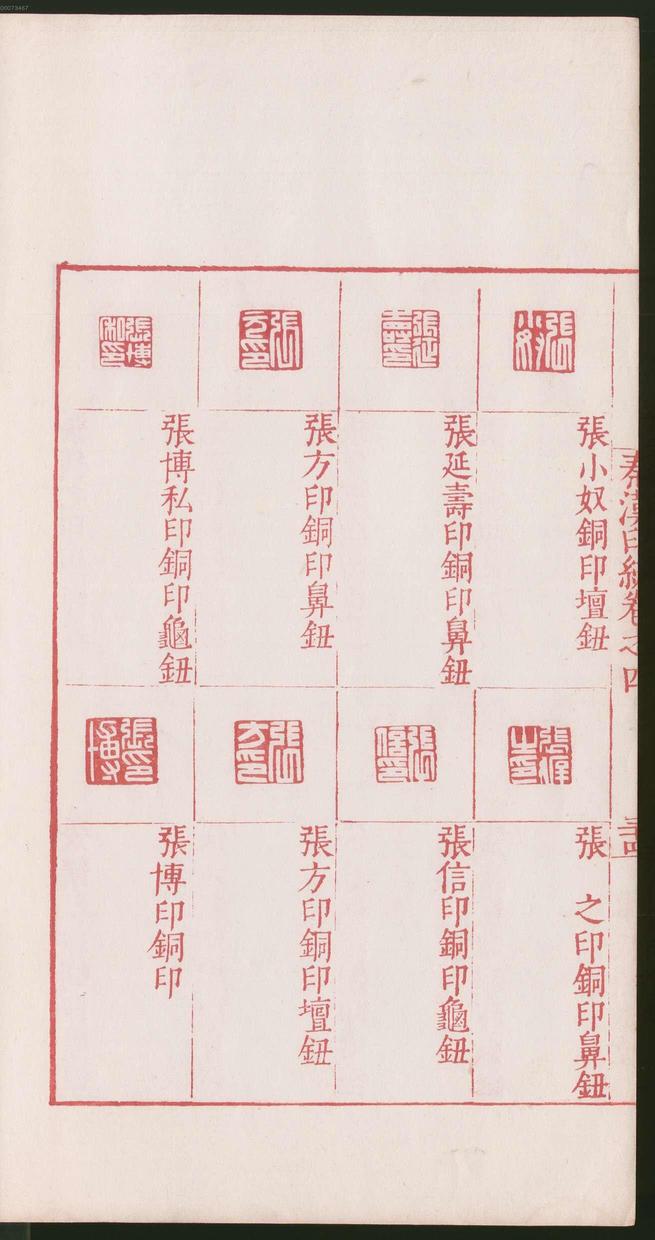 00073467
秦漢印統卷之四
張小奴銅印壇鈕
張延壽印銅印鼻鈕
張方印銅印鼻鈕
張博私印銅印龜鈕
張 之印銅印鼻鈕
張信印銅印龜鈕
張方印銅印壇鈕
張博印銅印